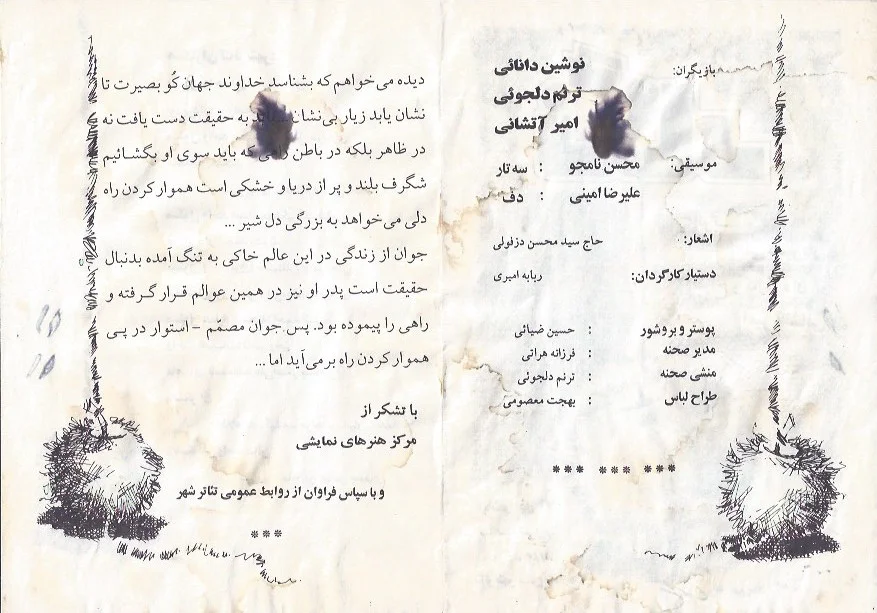 بازیگران: نوشین دانائی
ترنم دلجوئی
امیر آتشانی
موسیقی: محسن نامجو : سه تار
علیرضا امینی : دف
اشعار: حاج سید محسن دزفولی
دستیار کارگردان: ربابه امیری
پوستر و بروشور : حسین ضیائی
مدیر صحنه : فرزانه هراتی
منشی صحنه : ترنم دلجوئی
طراح لباس : بهجت معصومی
*** *** ***
دیده می‌خواهم که بشناسد خداوند جهان کُو بصیرت تا
نشان یابد زیار بی‌نشان به حقیقت دست یافت نه
در ظاهر بلکه در باطن که باید سوی او بگشائیم
شگرف بلند و پر از دریا و خشکی است هموار کردن راه
دلی می‌خواهد به بزرگی دل شیر ...
جوان از زندگی در این عالم خاکی به تنگ آمده بدنبال
حقیقت است پدر او نیز در همین عوالم قرار گرفته و
راهی را پیموده بود. پس جوان مصمّم - استوار در پی
هموار کردن راه برمی‌آید اما ...
با تشکر از
مرکز هنرهای نمایشی
و با سپاس فراوان از روابط عمومی تئاتر شهر
***